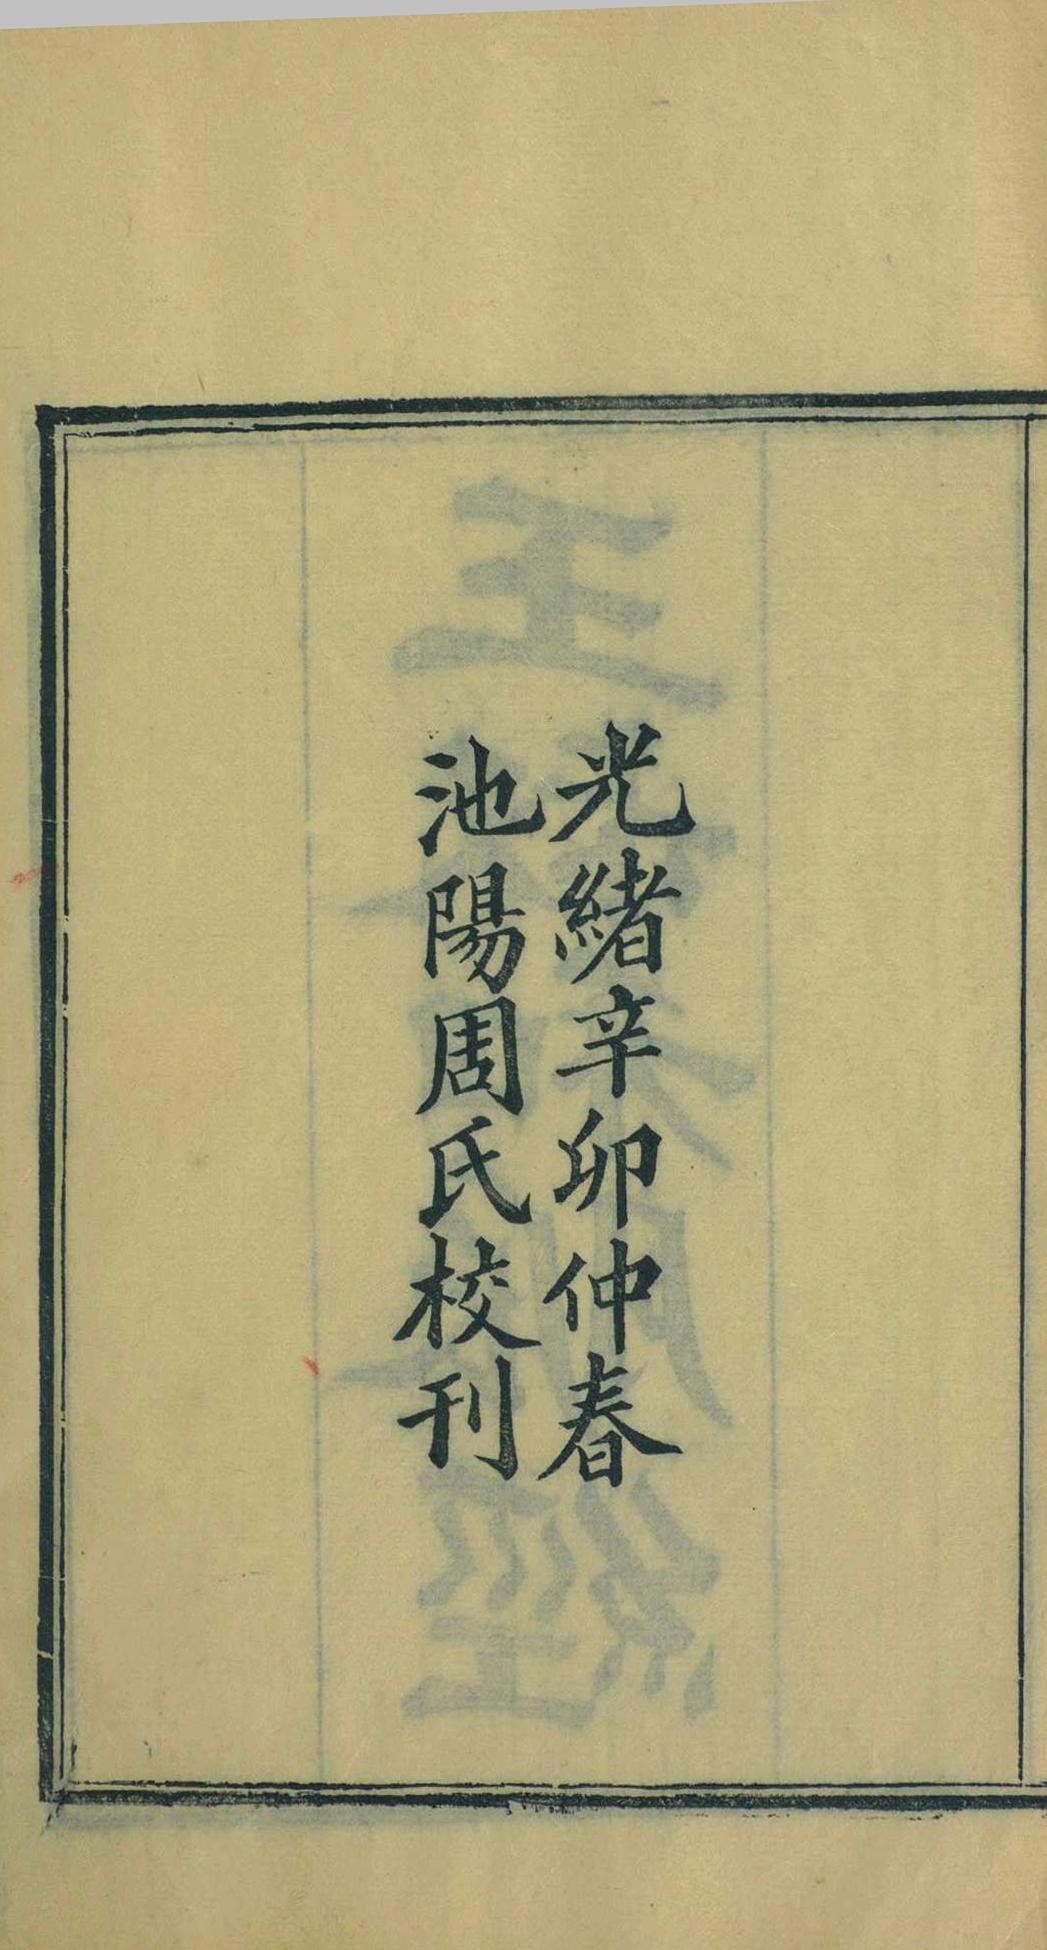 光緒辛卯仲春
池陽周氏校刊